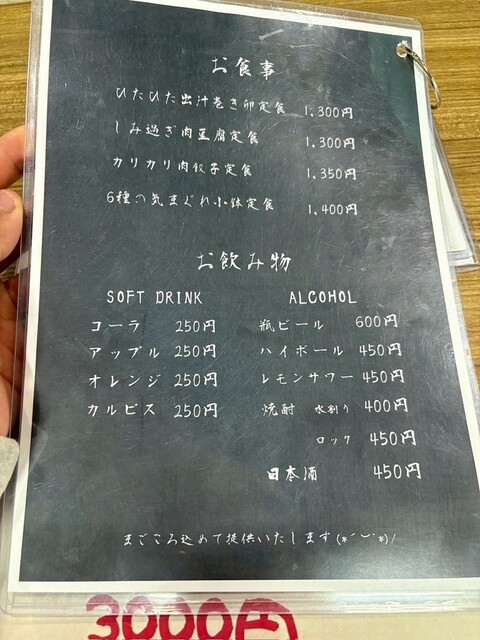 お食事
ひたひた出汁巻き卵定食 1,300円
しみ過ぎ肉豆腐定食 1,300円
カリカリ肉餃子定食 1,350円
6種の気まぐれ小鉢定食 1,400円
お飲み物
SOFT DRINK
コーラ 250円
アップル 250円
オレンジ 250円
カルピス 250円
ALCOHOL
瓶ビール 600円
ハイボール 450円
レモンサワー 450円
焼酎 水割り 400円
ロック 450円
日本酒 450円
まごころ込めて提供いたします(*´︶`*)/
3000円